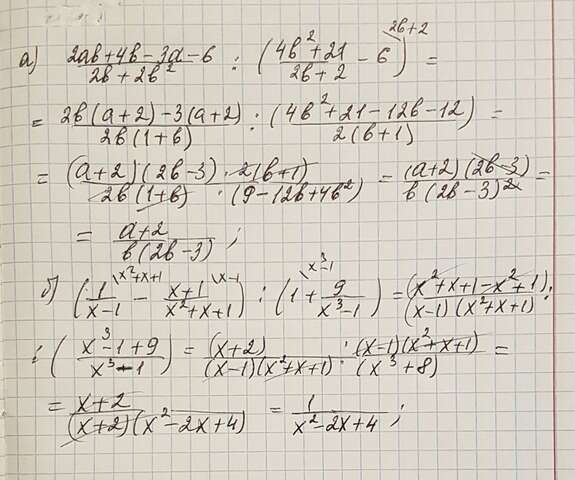 а) (2ab+4b-3a-6)/(2b+2b²) : ((4b²+21)/(2b+2) - 6^(\2b+2)) =
= (2b(a+2)-3(a+2))/(2b(1+b)) : ((4b²+21-12b-12)/(2(b+1))) =
= ((a+2)(2b-3)·2(b+1))/(2b(1+b)·(9-12b+4b²)) = ((a+2)(2b-3))/(b(2b-3)²) =
= (a+2)/(b(2b-3));
б) (1/(x-1)^(\x²+x+1) - (x+1)/(x²+x+1)^(\x-1)) : (1^(\x³-1) + 9/(x³-1)) = (x²+x+1-x²+1)/((x-1)(x²+x+1)) :
: ((x³-1+9)/(x³-1)) = (x+2)/((x-1)(x²+x+1)) · ((x-1)(x²+x+1))/(x³+8) =
= (x+2)/((x+2)(x²-2x+4)) = 1/(x²-2x+4);